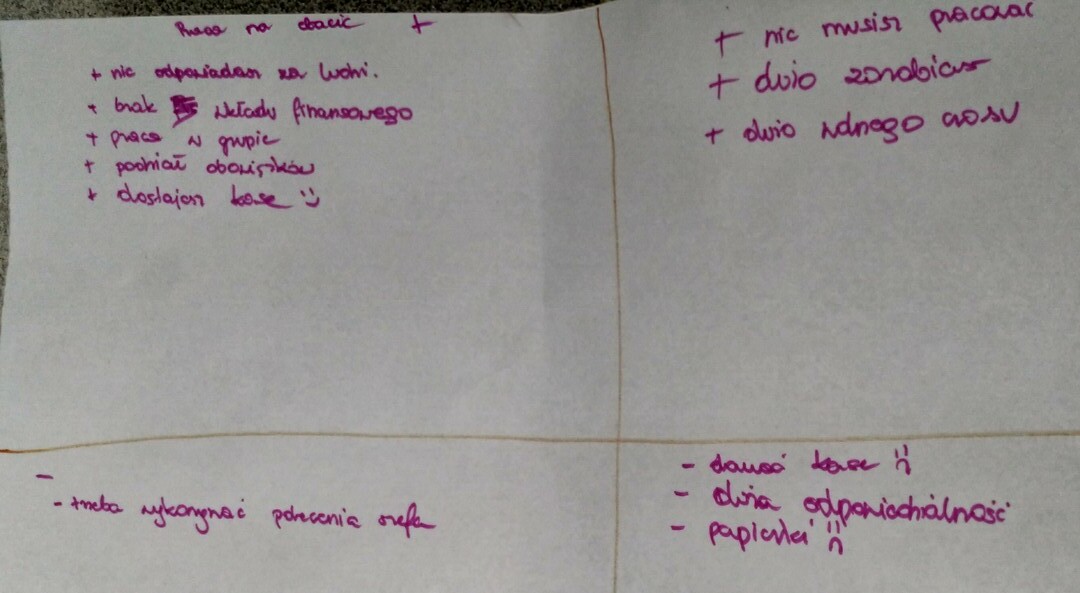 Praca na etacie +
+ nie odpowiadasz za ludzi.
+ brak wkładu finansowego
+ praca w grupie
+ podział obowiązków
+ dostajesz kasę :)
+ nie musisz pracować
+ dużo zarabiasz
+ dużo wolnego czasu
-
- trzeba wykonywać polecenia szefa
- dawać kasę :(
- duża odpowiedzialność
- papierki :(